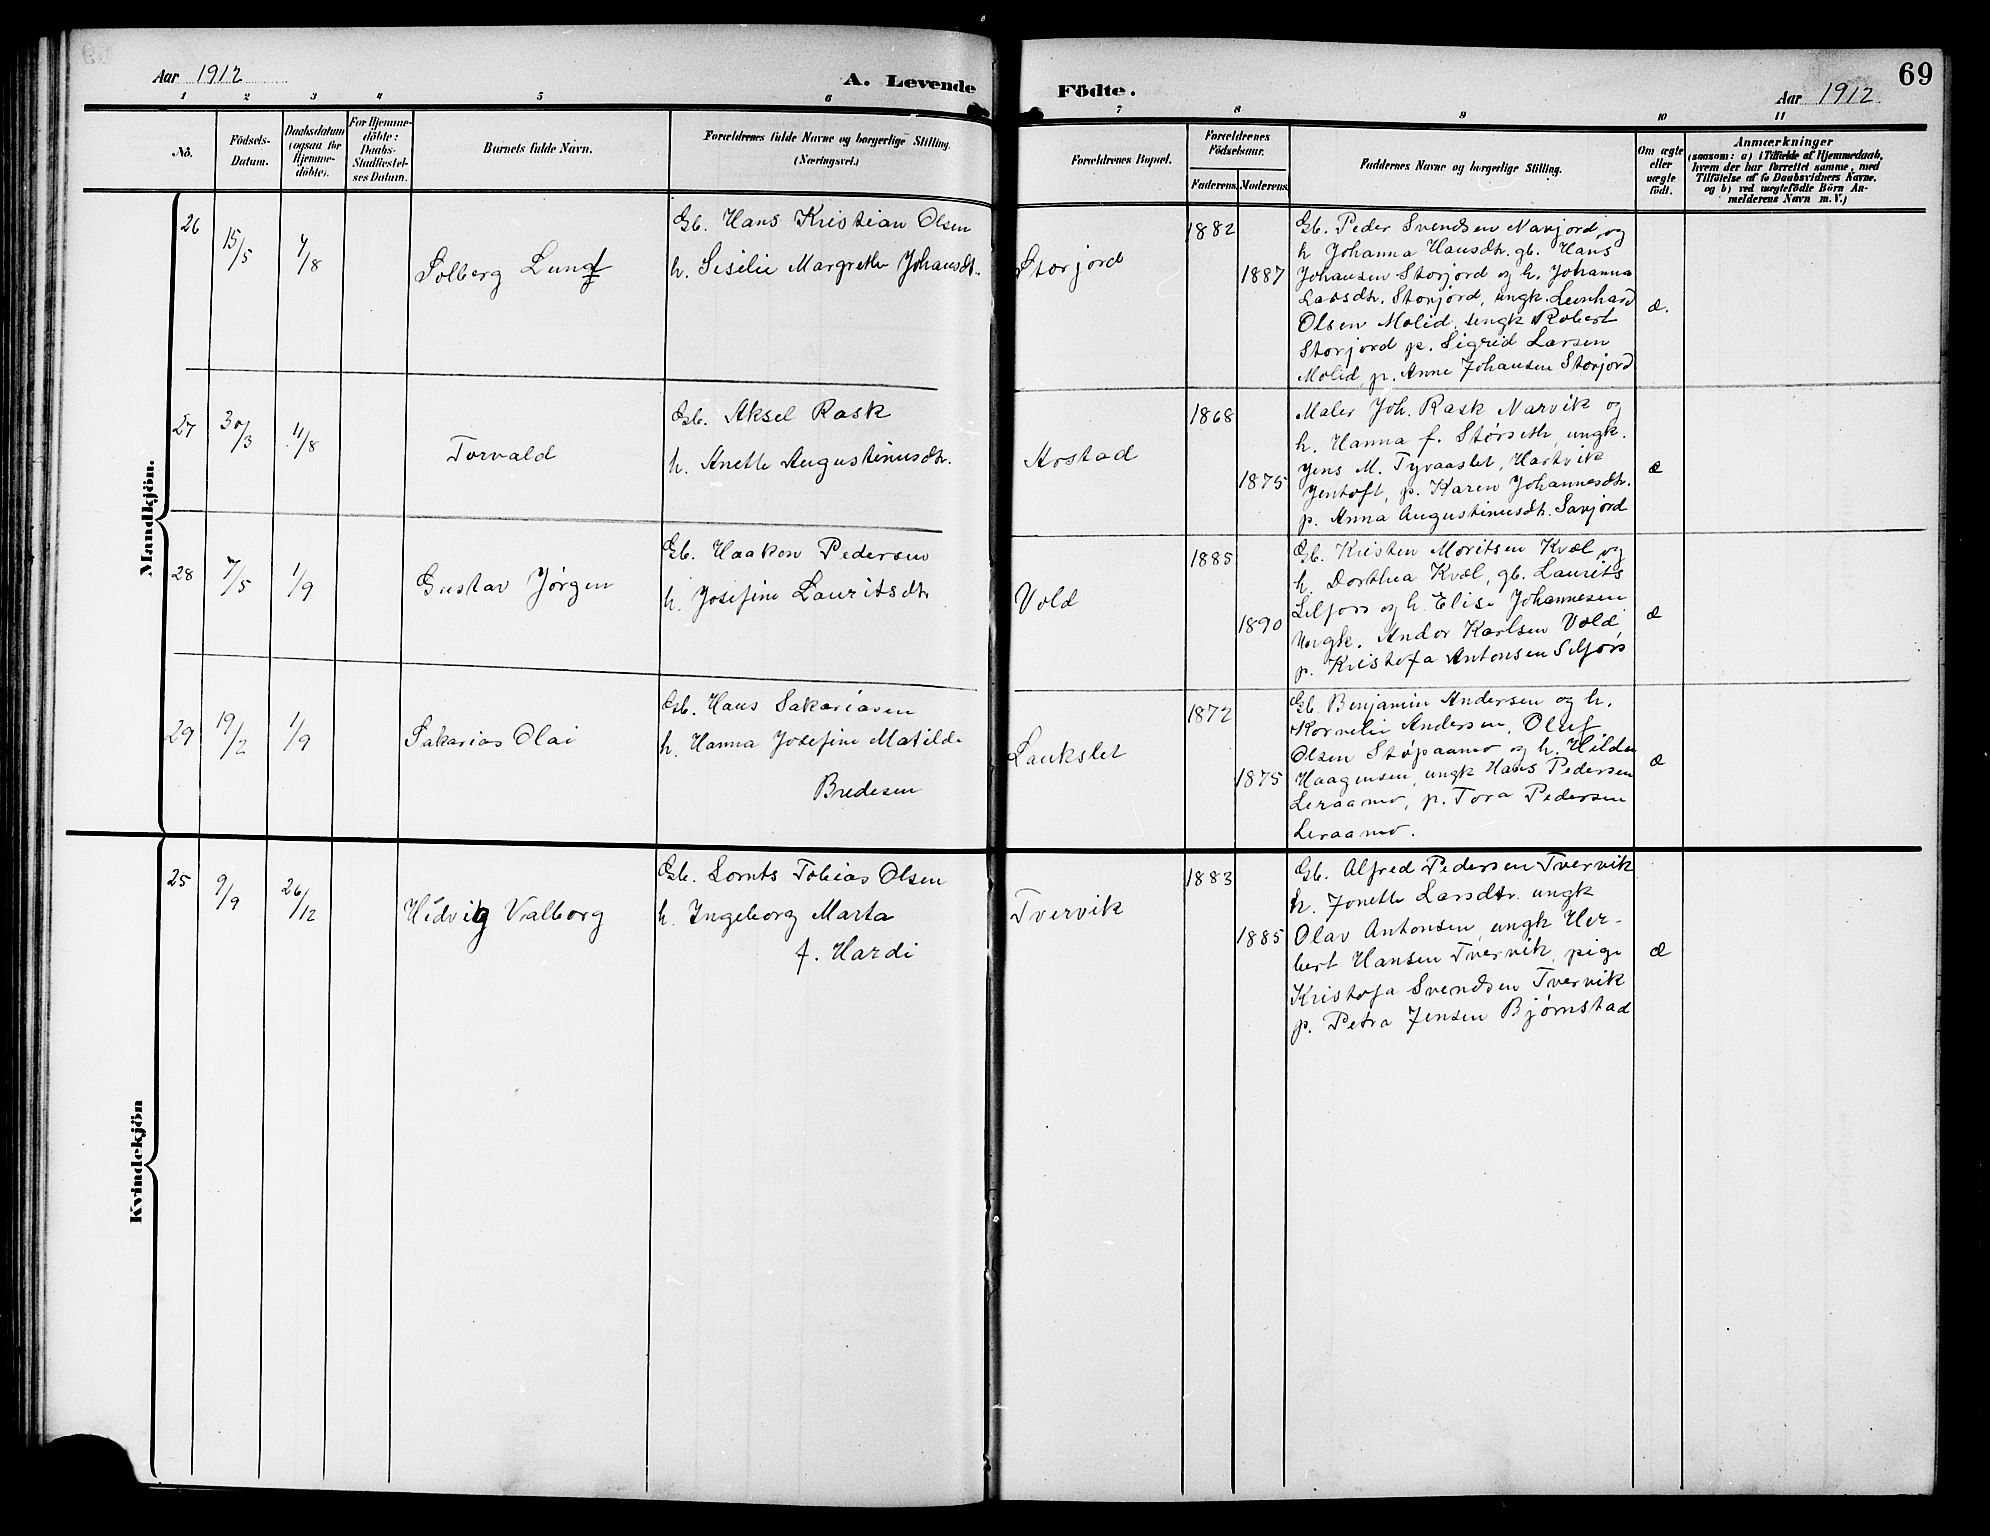 Aar 1912
A. Levende
Födte.
Aar 1912
69
1 2 3 4 5 6 7 8 9 10 11
No.
Födsels-
Datum.
Daabsdatum
(ogsaa for
Hjemme-
døbte).
For Hjemme-
døbte:
Daabs-
Stadfæstel-
ses Datum.
Barnets fulde Navn.
Forældrenes fulde Navne og borgerlige Stilling.
(Næringsvei.)
Forældrenes Bopæl.
Forældrenes
Fødselsaar.
Faderens. Moderens.
Faddernes Navne og borgerlige Stilling.
Om ægte
eller
uægte
født.
Anmærkninger
(saasom: a) i Tilfælde af Hjemmedaab,
hvem der har forrettet samme, med
Tilføielse af to Daabsvidners Navne,
og b) ved uægtefødte Børn An-
melderens Navn m. V.)
Mandkjön.
26
15/5
4/8
Solberg Lung
Gb. Hans Kristian Olsen
h. Sesilie Margrethe Johansdt.
Storjord
1882
1887
Gb. Peder Svendsen Navjord og
h Johanna Hansdtr. gb. Hans
Johansen Storjord og h. Johanna
Larsdtr. Storjord, ungk. Leonhard
Olsen Molid, ungk Robert
Storjord p. Sigrid Larsen
Molid, p. Anne Johansen Storjord
æ.
27
30/3
11/8
Torvald
Gb. Aksel Rask
h. Anette Augustinusdtr.
Arstad
1868
1875
Maler Joh. Rask Narvik og
h. Hanna f. Størseth, ungk.
Jens M. Tyvaaslet, Hartvik
Jentoft, p. Karen Johannesdtr.
p. Anna Augustinusdtr. Savjord
æ
28
7/5
1/9
Gustav Jørgen
Gb. Haakon Pedersen
h. Josefine Lauritsdtr
Vold
1885
1890
Gb. Kristen Moritsen Kvæl og
h. Dorthea Kvæl, gb. Laurits
Selfors og h. Elise Johannesen
Ungk. Andor Karlsen Vold
p. Kristofa Antonsen Selfors
æ
29
19/2
1/9
Sakarias Olai
Gb. Hans Sakariasen
h. Hanna Josefine Matilde
Bredesen
Laukslet
1872
1875
Gb. Benjamin Andersen og h.
Kornelie Andersen, Oluf
Olsen Støpaamo og h. Hilda
Haagensen, ungk Hans Pedersen
Leraamo, p. Tora Pedersen
Leraamo.
æ
Kvindekjön
25
9/9
26/12
Hedvig Valborg
Gb. Lornts Tobias Olsen
h. Ingeborg Marta
f. Hardi
Tvervik
1883
1885
Gb. Alfred Pedersen Tvervik
h. Jonette Larsdtr. ungk
Olav Antonsen, ungk Her-
bert Hansen Tvervik, pige
Kristofa Svendsen Tvervik
p. Petra Jensen Bjørnstad
æ